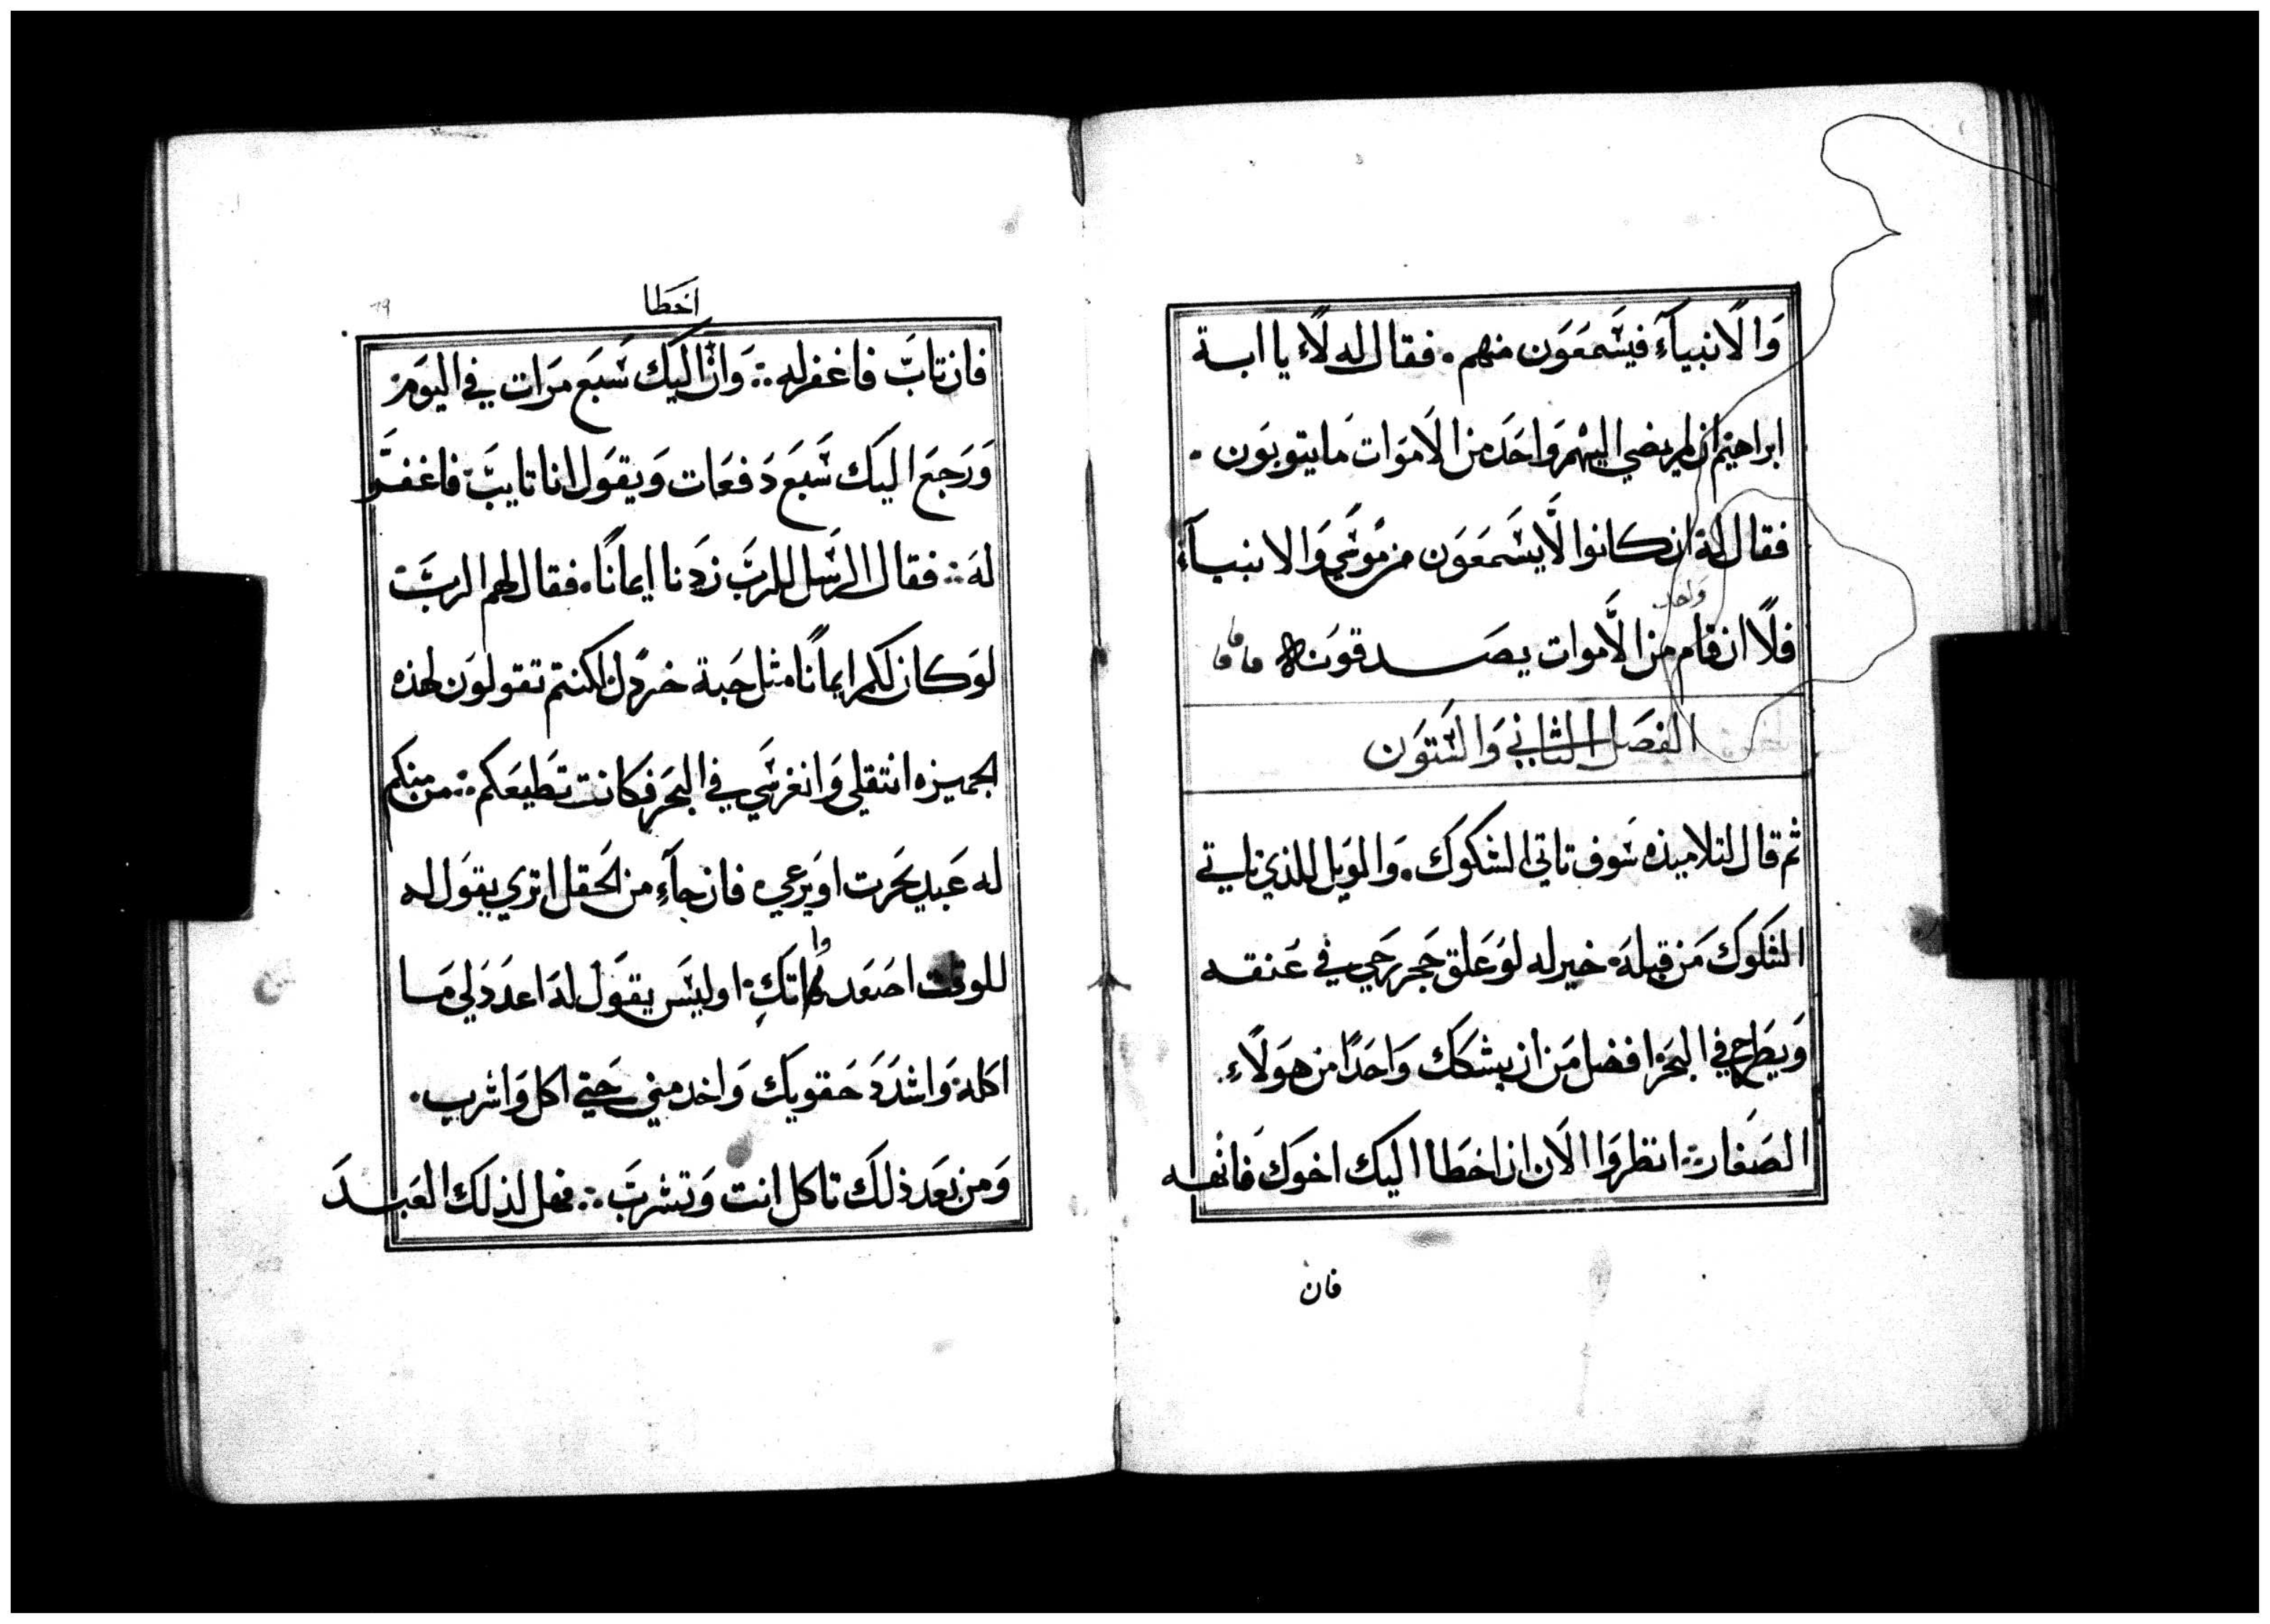 وَالَانبيآءَ فيسَّمعَوَن منهم. فقال له لاَءَ يا ابة
ابراهيَم ان لم يمضي اليهم وَاحَد من الاَموَات مَا يتوبوَن.
فقال لهَ ان كانوا لَّا يسَّمعَوَن من موُسَّي وَالانبيآءَ
وَاحد
فلاً ان قام من الاَّموات يصَدقوَن
الفصَل الثاني وَالسَّتوَن
ثم قال لتلاميذه سَّوف تاتي الشكوك. وَالوَيل للذي تاتي
الشكوَك مَن قبلهَ خير له لوَ عَلق حَجر رَحي في عَنقه
وَيطَرح في البحَر افضل مَن ان يشكك وَاحَدًا من هوَلَاءِ.
الصَغار انظروَا الاَن ان اخطَا اليك اخوَك فَانهه
فان
اخَطا
٦٩
فان تابَّ فاغفر له وَان اليَك سَّبَع مرَات في اليوَم
وَرَجعَ اليَك سَّبَع دَفعَات وَيقوَل انا تايبَّ فاغفرَّ
لهَ فقال الرَسَّل للربَّ زدَنا ايمانًا. فقال لهم الربَّ
لوَكان لكم ايمانًا مثل حَبة خردَل لكنتم تقولوَن لهذه
الجميزه انتقلي وَانغرسَّي في البحَر فكانت تطَيعَكم من منكم
له عَبد يحَرت اوَيرعي فان جآءَ من الحَقل اتري يقوَل له
للوقت اصَعَد وَاتكِ اوليسَّ يقوَل لهَ اعدَدَ لي مَا
اكلهَ وَاشدَدَ حَقويَك وَاخدمني حَتي اكل وَاشرب.
وَمن بَعَد ذلَك تاكل انت وَتشربَّ فهل لذلَك العَبدَ